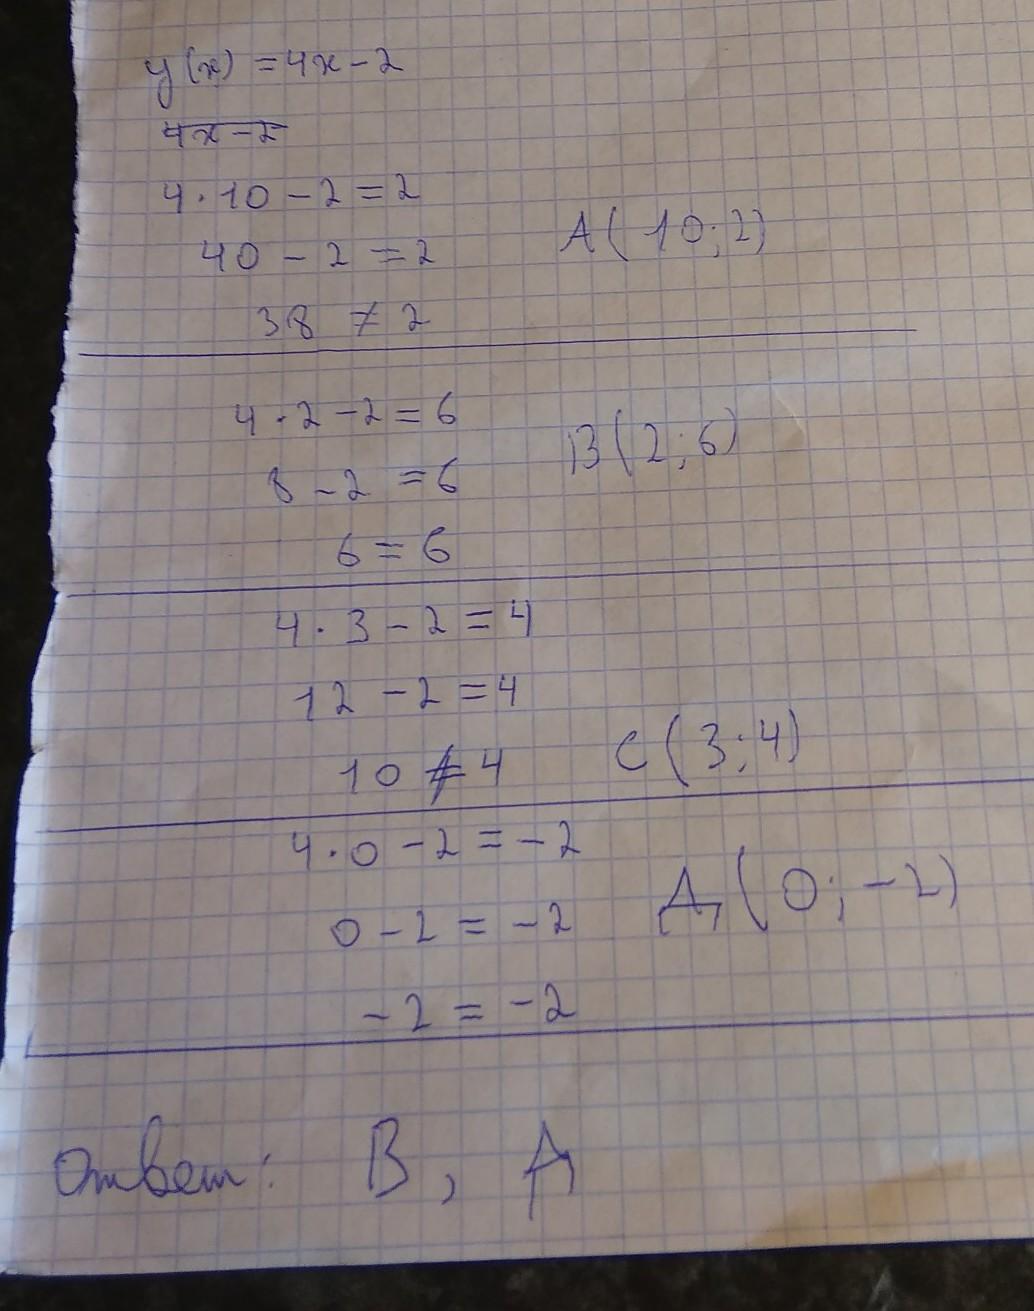 y(x) = 4x - 2
4x - 2
4 · 10 - 2 = 2
40 - 2 = 2
A(10; 2)
38 ≠ 2
4 · 2 - 2 = 6
B(2; 6)
8 - 2 = 6
6 = 6
4 · 3 - 2 = 4
12 - 2 = 4
10 ≠ 4
C(3; 4)
4 · 0 - 2 = -2
Д(0; -2)
0 - 2 = -2
-2 = -2
Ответ: В, Д